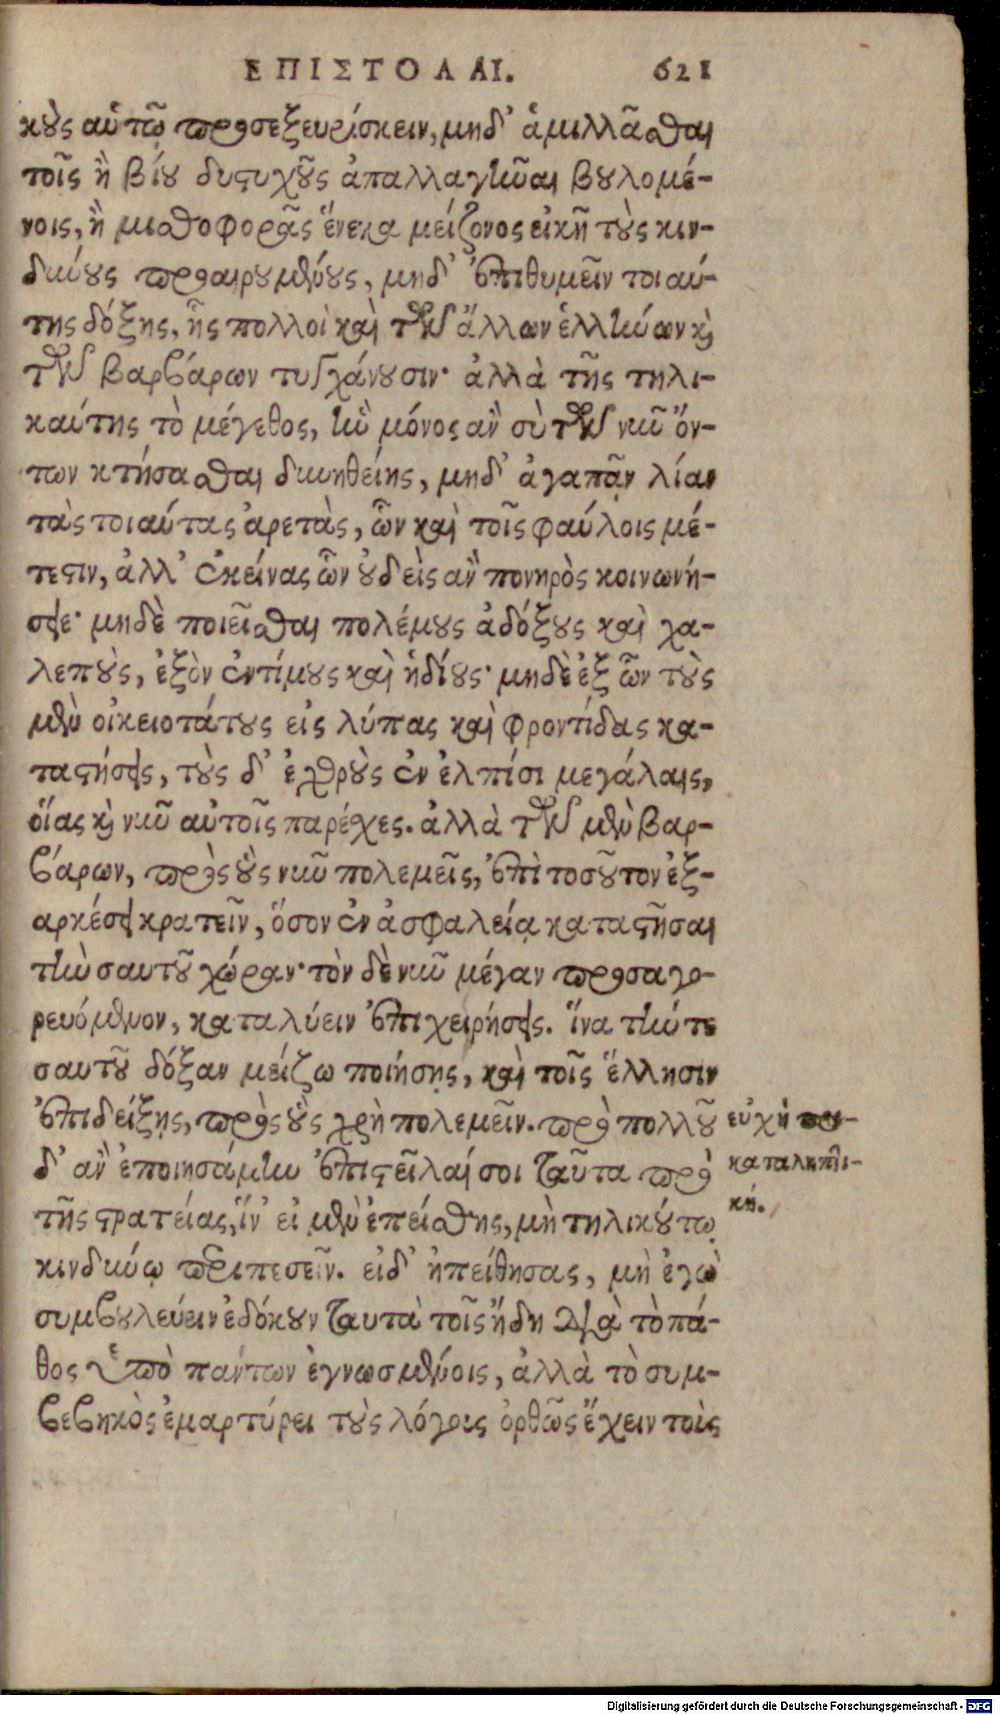 ΕΠΙΣΤΟΛΑΙ. 621
κοὺς αὑτῷ προσεξευρίσκειν, μηδ' ἁμιλλᾶσθαι
τοῖς ἢ βίου δυστυχοῦς ἀπαλλαγῆναι βουλομέ-
νοις, ἢ μισθοφορᾶς ἕνεκα μείζονος εἰκῆ τοὺς κιν-
δύνους προαιρουμένους, μηδ' ἐπιθυμεῖν τοιαύ-
της δόξης, ἧς πολλοὶ καὶ τῶν ἄλλων ἑλλήνων καὶ
τῶν βαρβάρων τυγχάνουσιν· ἀλλὰ τῆς τηλι-
καύτης τὸ μέγεθος, ἣν μόνος ἂν σὺ τῶν νῦν ὄν-
των κτήσασθαι δυνηθείης, μηδ' ἀγαπᾷν λίαν
τὰς τοιαύτας ἀρετὰς, ὧν καὶ τοῖς φαύλοις μέ-
τεστιν, ἀλλ' ἐκείνας ὧν οὐδεὶς ἂν πονηρὸς κοινωνή-
σειε· μηδὲ ποιεῖσθαι πολέμους ἀδόξους καὶ χα-
λεποὺς, ἐξὸν ἐντίμους καὶ ῥᾳδίους· μηδὲ ἐξ ὧν τοὺς
μὲν οἰκειοτάτους εἰς λύπας καὶ φροντίδας κα-
ταστήσεις, τοὺς δ' ἐχθροὺς ἐν ἐλπίσι μεγάλαις,
οἵας καὶ νῦν αὐτοῖς παρέχες. ἀλλὰ τῶν μὲν βαρ-
βάρων, πρὸς οὓς νῦν πολεμεῖς, ἐπὶ τοσοῦτον ἐξ-
αρκέσει κρατεῖν, ὅσον ἐν ἀσφαλείᾳ καταστῆσαι
τὴν σαυτοῦ χώραν· τὸν δὲ νῦν μέγαν προσαγο-
ρευόμενον, καταλύειν ἐπιχειρήσεις. ἵνα τήν τε
σαυτοῦ δόξαν μείζω ποιήσῃς, καὶ τοῖς ἕλλησιν
ἐπιδείξῃς, πρὸς οὓς χρὴ πολεμεῖν. πρὸ πολλοῦ
δ' ἂν ἐποιησάμην ἐπιστεῖλαί σοι ταῦτα πρὸ
τῆς στρατείας, ἵν' εἰ μὲν ἐπείσθης, μὴ τηλικούτῳ
κινδύνῳ περιπεσεῖν. εἰ δ' ἠπείθησας, μὴ ἐγὼ
συμβουλεύειν ἐδόκουν ταυτὰ τοῖς ἤδη διὰ τὸ πά-
θος ὑπὸ πάντων ἐγνωσμένοις, ἀλλὰ τὸ συμ-
βεβηκὸς ἐμαρτύρει τοὺς λόγους ὀρθῶς ἔχειν τοὺς
εὐχὴ προ-
καταληπτι-
κή.
Digitalisierung gefördert durch die Deutsche Forschungsgemeinschaft - DFG